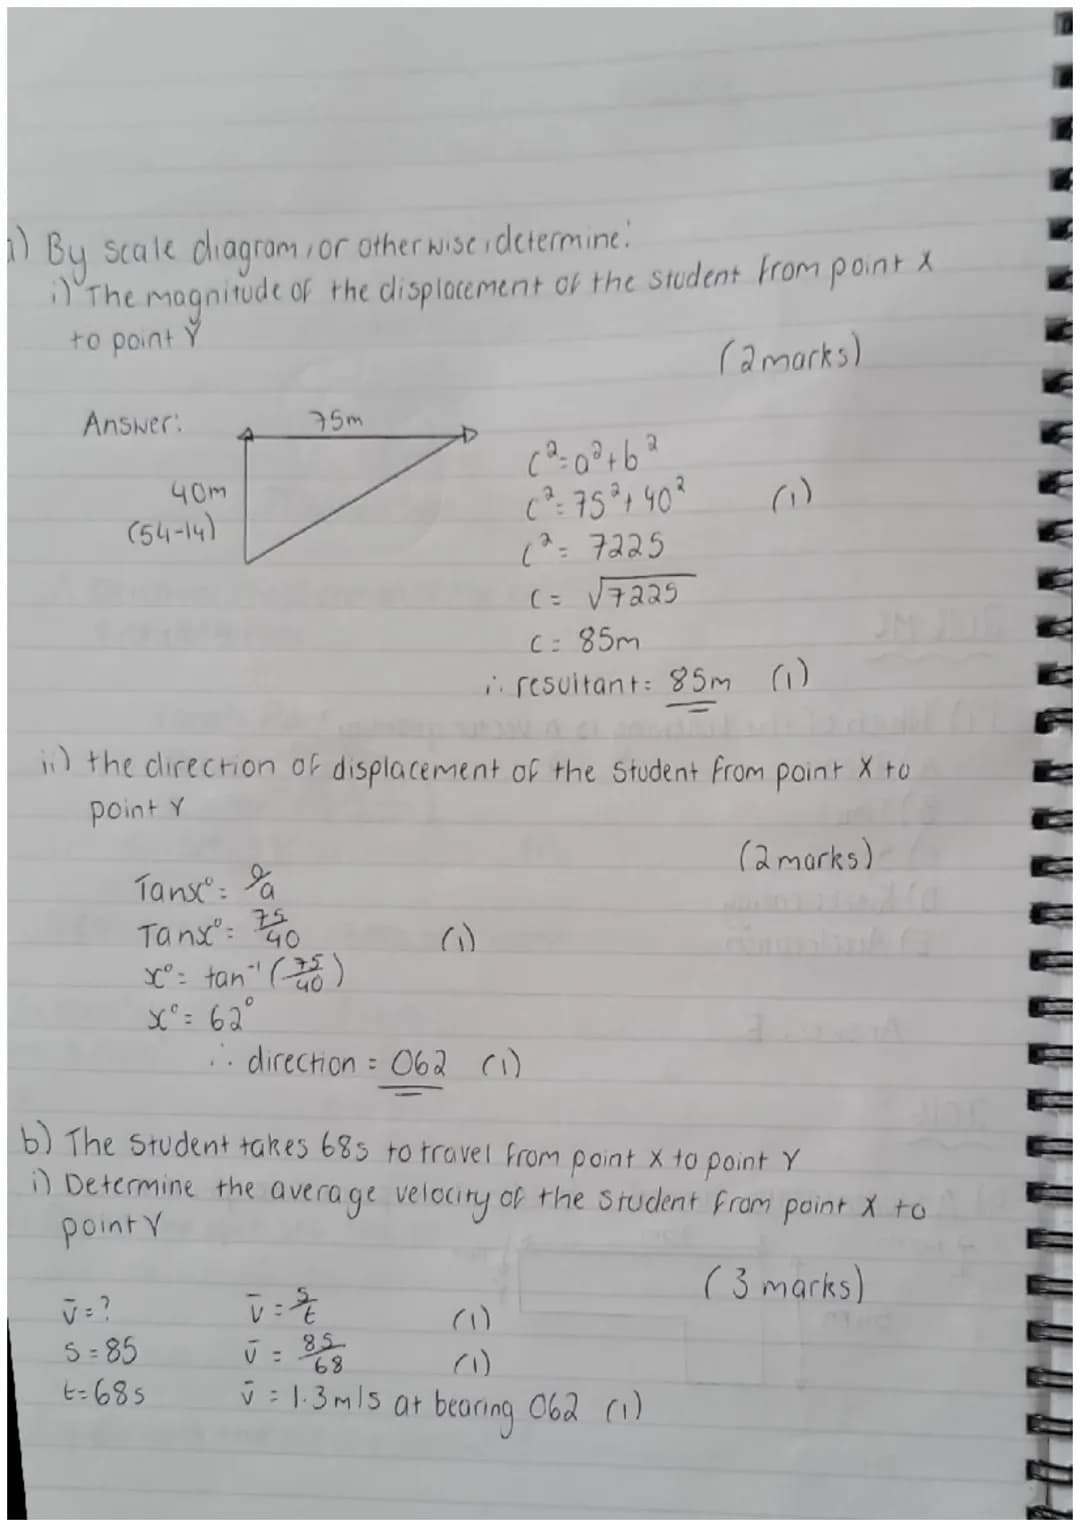 a) By scale diagram, or otherwise, determine:
i) The magnitude of the displacement of the student from point X
to point Y
(2 marks)
Answer:
75m
40m
(54-14)
c²=a²+b²
c²=75²+40² (1)
c²= 7225
c= √7225
c= 85m
∴ resultant= 85m (1)
ii) the direction of displacement of the student from point X to
point Y
(2 marks)
Tanx°= o/a
Tanx°= 75/40 (1)
x°= tan⁻¹(75/40)
x°= 62°
∴ direction = 062 (1)
b) The student takes 68s to travel from point X to point Y
i) Determine the average velocity of the student from point X to
point Y
(3 marks)
v̄=? v̄=s/t (1)
s=85 v̄= 85/68 (1)
t=68s v̄=1.3m/s at bearing 062 (1)